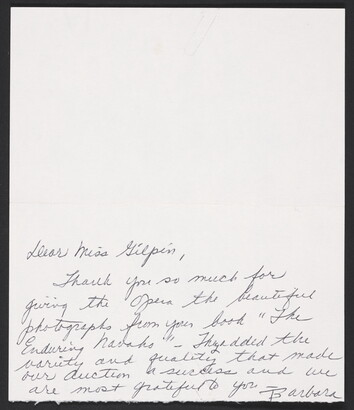 Dear Miss Gilpin,
Thank you so much for
giving the Opera the beautiful
photographs from your book "The
Enduring Navaho" - They added the
variety and quality that made
our auction a success and we
are most grateful to you -
Barbara